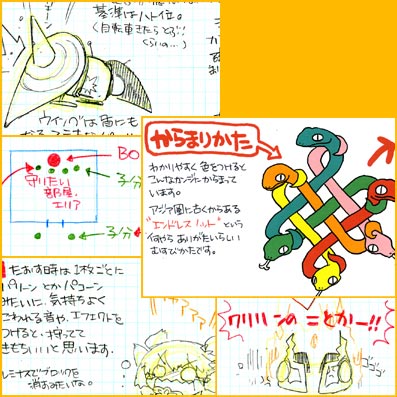 基準はハト位。
(自転車きたらとぶ!!
くらいの…)
ウイングは歯にも
BO
子分
守りたい
部屋、
エリア
子分
からまりかた
わかりやすく色をつけると
こんなカンジにからまって
います。
アジア圏に古くからある
"エンドレスノット"という
何やらありがたいらしい
むすびかたです。
たおす時は1枚ごとに
パリーンとかパコーン
みたいに、気持ちよく
こわれる音や、エフェクトを
つけると、狩ってて
きもちいいと思います。
レミナスでブロックを
消すみたいな。
ゴゴゴ